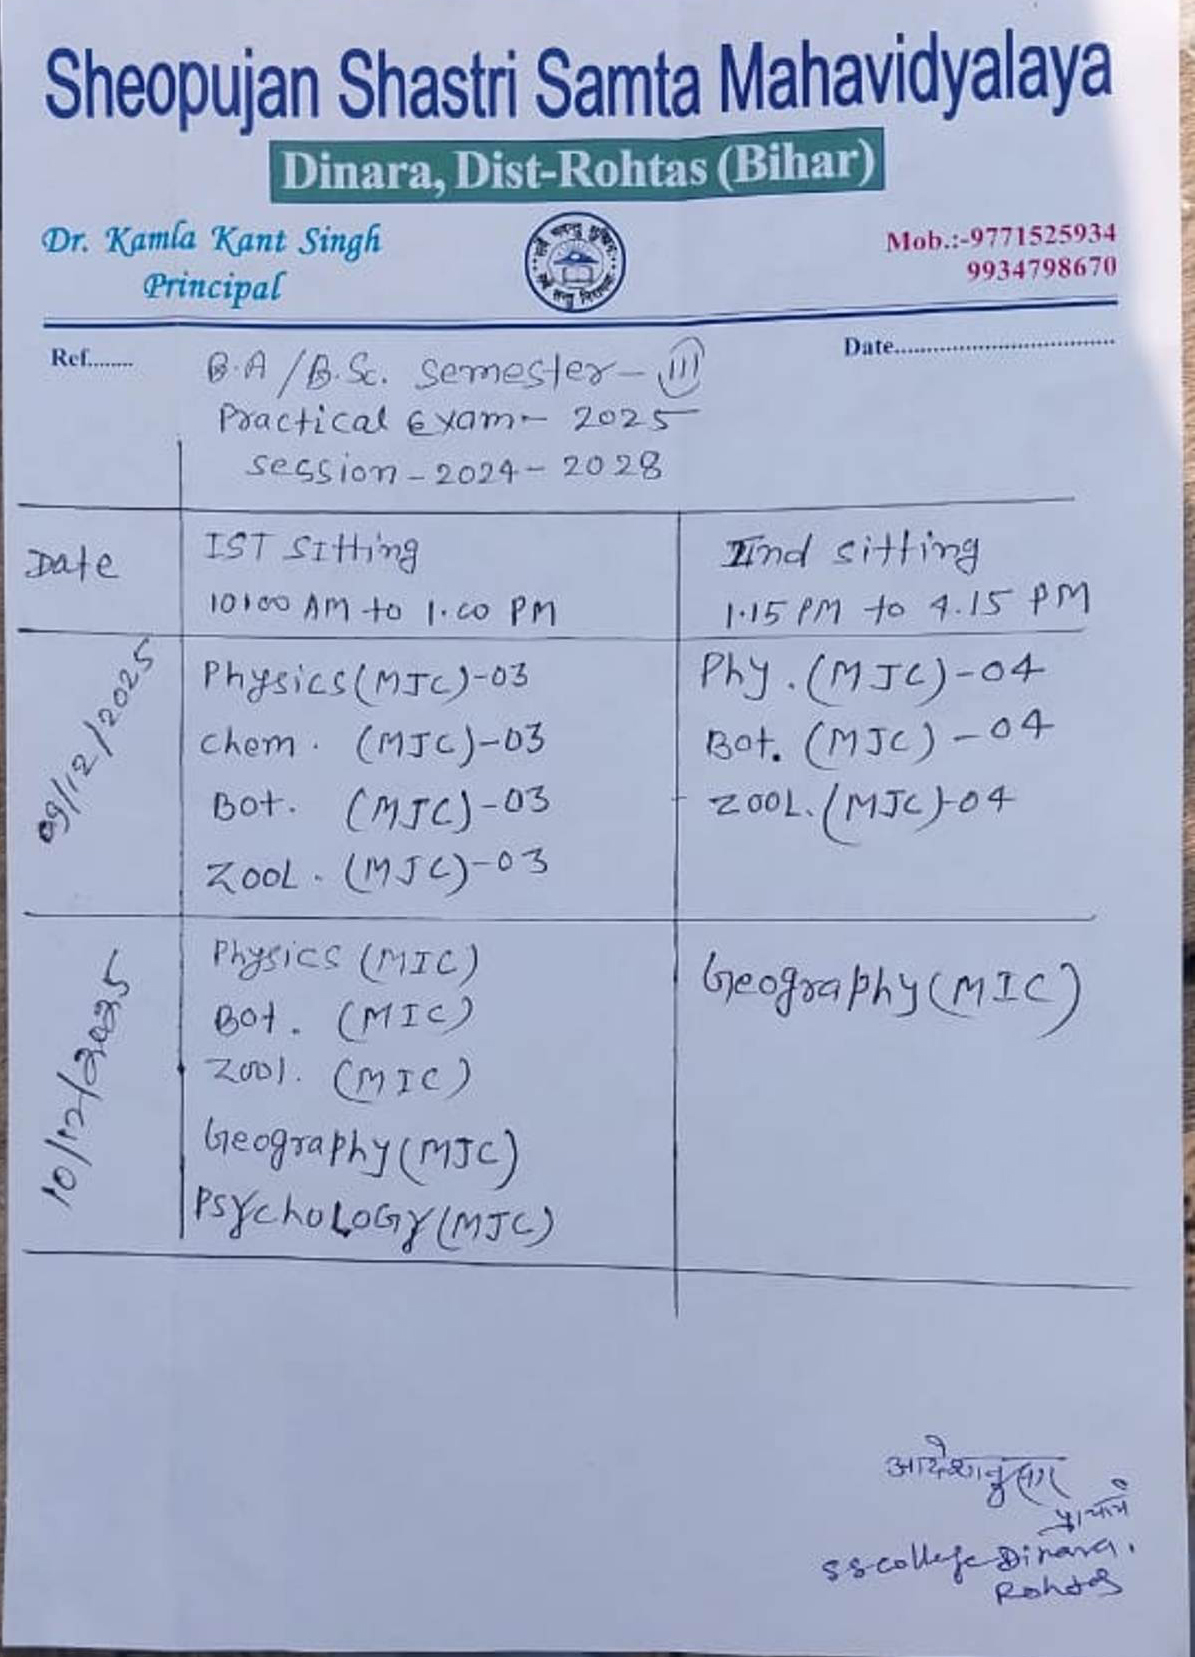 Sheopujan Shastri Samta Mahavidyalaya
Dinara, Dist-Rohtas (Bihar)
Dr. Kamla Kant Singh
Principal
Mob.:-9771525934
9934798670
Ref........
Date.................................
B.A / B.Sc. Semester - III
Practical Exam - 2025
Session - 2024 - 2028
Date
IST Sitting
10:00 AM to 1.00 PM
IInd sitting
1.15 PM to 4.15 PM
09/12/2025
Physics (MJC)-03
Chem. (MJC)-03
Bot. (MJC)-03
ZOOL. (MJC)-03
Phy. (MJC)-04
Bot. (MJC)-04
ZOOL. (MJC)-04
10/12/2025
Physics (MIC)
Bot. (MIC)
Zool. (MIC)
Geography (MJC)
PsychoLOGY (MJC)
Geography (MIC)
आदेशानुसार
प्राचार्य
SS College Dinara,
Rohtas